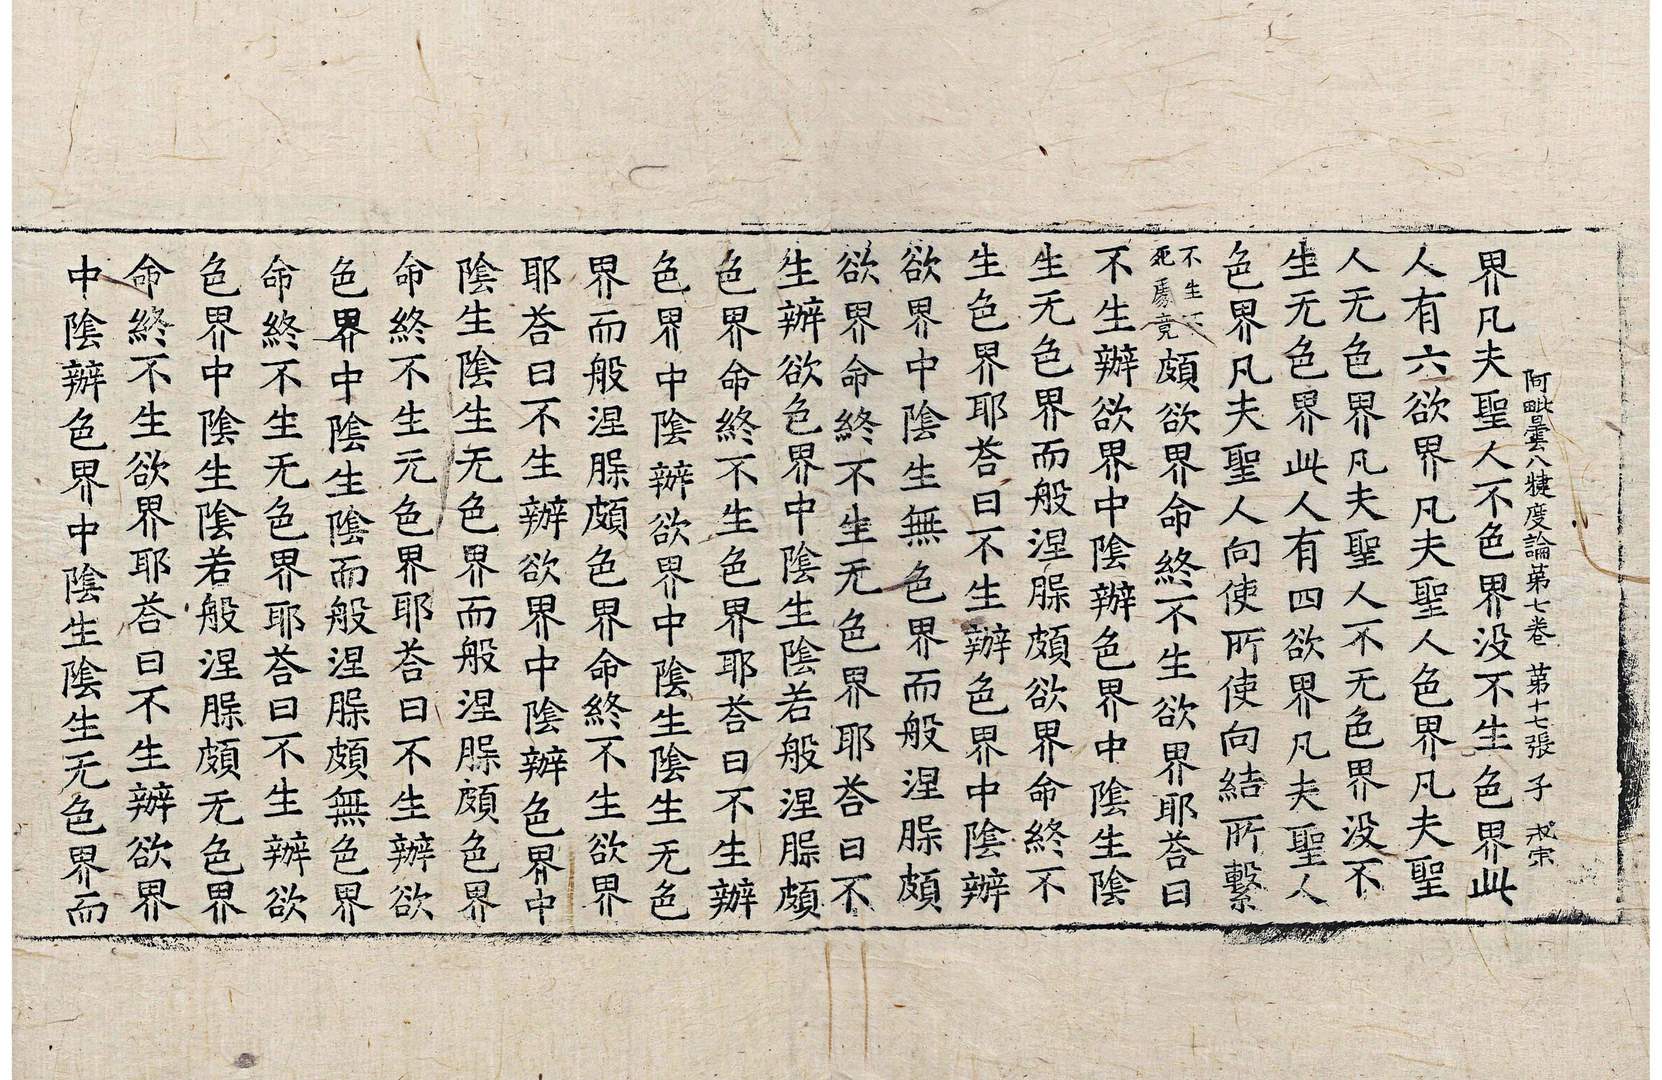 阿毗曇八犍度論第七卷 第十七張 子
界凡夫聖人不色界没不生色界此
人有六欲界凡夫聖人色界凡夫聖
人无色界凡夫聖人不无色界没不
生无色界此人有四欲界凡夫聖人
色界凡夫聖人向使所使向結所繫
不生不
死處竟頗欲界命終不生欲界耶荅曰
不生辦欲界中陰辦色界中陰生陰
生无色界而般涅槃頗欲界命終不
生色界耶荅曰不生辦色界中陰辦
欲界中陰生無色界而般涅槃頗
欲界命終不生无色界耶荅曰不
生辦欲色界中陰生陰若般涅槃頗
色界命終不生色界耶荅曰不生辦
色界中陰辦欲界中陰生陰生无色
界而般涅槃頗色界命終不生欲界
耶荅曰不生辦欲界中陰辦色界中
陰生陰生无色界而般涅槃頗色界
命終不生无色界耶荅曰不生辦欲
色界中陰生陰而般涅槃頗無色界
命終不生无色界耶荅曰不生辦欲
色界中陰生陰若般涅槃頗无色界
命終不生欲界耶荅曰不生辦欲界
中陰辦色界中陰生陰生无色界而